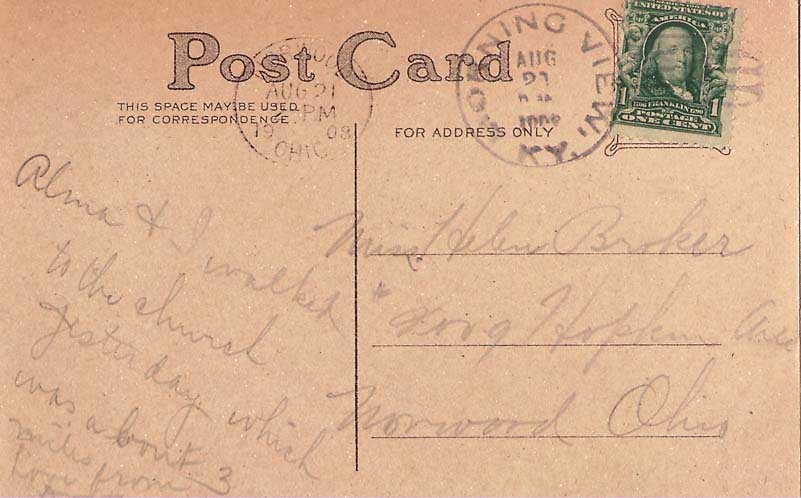 Post Card
THIS SPACE MAY BE USED
FOR CORRESPONDENCE
FOR ADDRESS ONLY
AUG 21
PM
19 08
OHIO
MORNING VIEW,
AUG
21
1908
KY.
UNITED STATES OF
AMERICA
1 FRANKLIN 1
POSTAGE
ONE CENT
Alma & I walked
to the church
yesterday which
was about 3
miles from
here
Miss Helen Broker
Hopkins Ave
Norwood Ohio